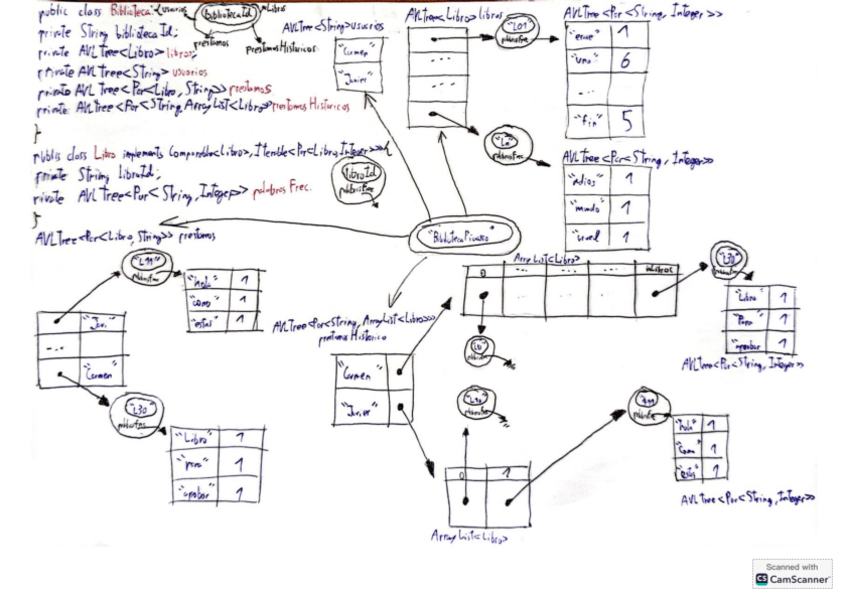 public class Biblioteca{
private String bibliotecaId;
private AVLTree<Libro> libros;
private AVLTree<String> usuarios
private AVLTree<Par<Libro, String>> prestamos
private AVLTree<Par<String, ArrayList<Libro>> prestamosHistoricos
}
usuarios
BibliotecaId
Libros
prestamos
prestamosHistoricos
public class Libro implements Comparable<Libro>, Iterable<Par<Libro, Integer>>{
private String LibroId;
private AVLTree<Par<String, Integer>> palabrasFrec.
}
LibroId
palabrasFrec
AVLTree<String> usuarios
"Carmen"
"Javier"
AVLTree<Libro> libros
...
...
"L01"
palabrasFrec
AVLTree<Par<String, Integer>>
"erase" 1
"una" 6
...
"fin" 5
palabrasFrec
AVLTree<Par<String, Integer>>
"adios" 1
"mundo" 1
"cruel" 1
"BibliotecaPicasso"
AVLTree<Par<Libro, String>> prestamos
"L99"
palabrasFrec
"hola" 1
"como" 1
"estas" 1
"Javi"
...
"Carmen"
"L30"
palabrasFrec
"Libro" 1
"para" 1
"aprobar" 1
AVLTree<Par<String, ArrayList<Libro>>>
prestamosHistorico
"Carmen"
"Javier"
ArrayList<Libro>
0 ... ... ...
... ... ...
"L30"
palabrasFrec
"Libro" 1
"Para" 1
"aprobar" 1
AVLTree<Par<String, Integer>>
palabrasFrec
palabrasFrec
0 1
ArrayList<Libro>
palabrasFrec
"hola" 1
"Como" 1
"estas" 1
AVLTree<Par<String, Integer>>
Scanned with
CS CamScanner